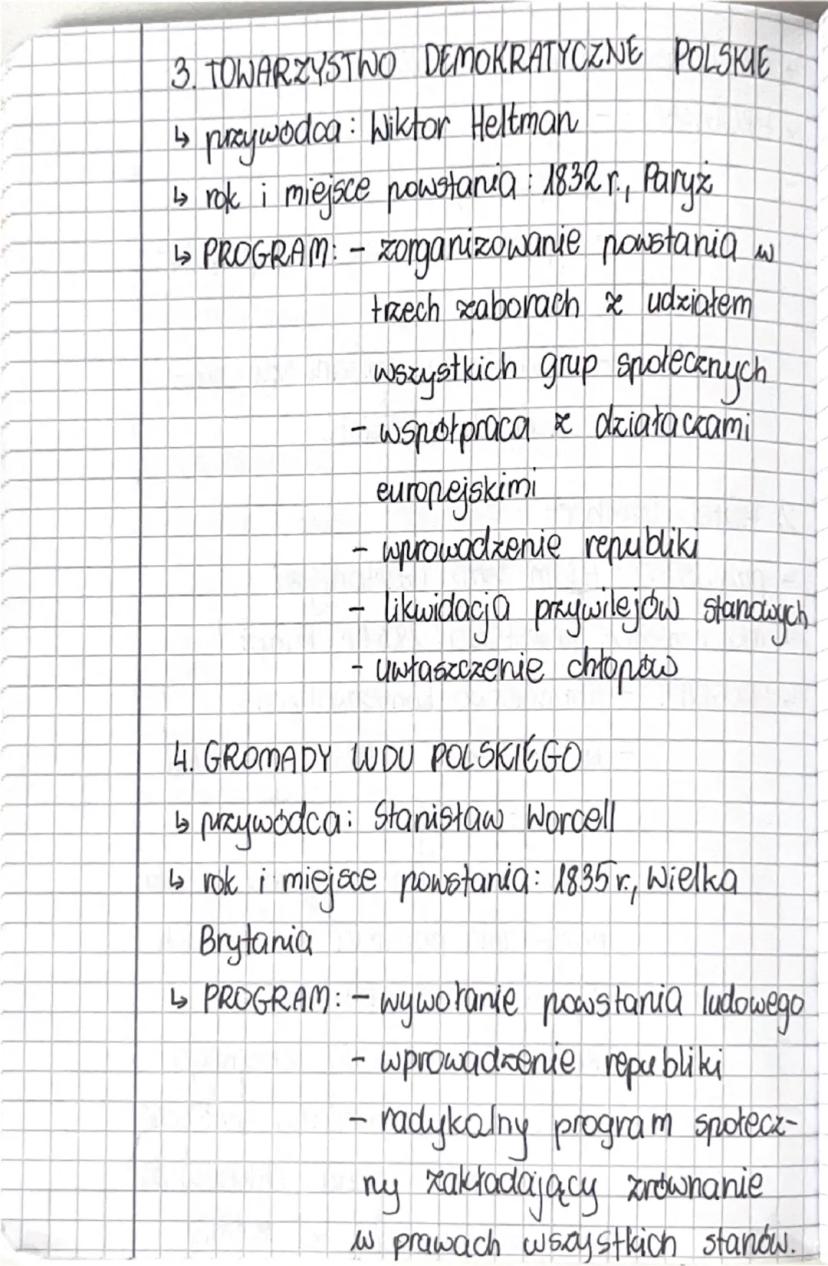 3. TOWARZYSTWO DEMOKRATYCZNE POLSKIE
↳ przywódca: Wiktor Heltman
↳ rok i miejsce powstania: 1832 r., Paryż
↳ PROGRAM: - zorganizowanie powstania w
trzech zaborach z udziałem
wszystkich grup społecznych
- współpraca z działaczami
europejskimi
- wprowadzenie republiki
- likwidacja przywilejów stanowych
- uwłaszczenie chłopów
4. GROMADY LUDU POLSKIEGO
↳ przywódca: Stanisław Worcell
↳ rok i miejsce powstania: 1835 r., Wielka
Brytania
↳ PROGRAM: - wywołanie powstania ludowego
- wprowadzenie republiki
- radykalny program społecz-
ny zakładający zrównanie
w prawach wszystkich stanów.